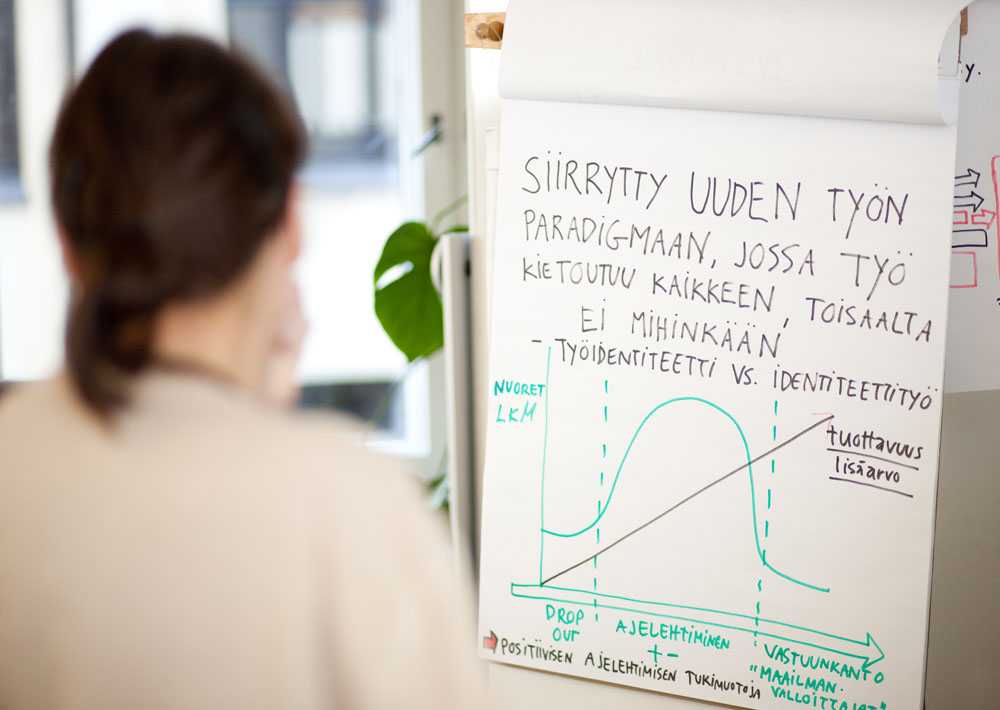 SIIRRYTTY UUDEN TYÖN
PARADIGMAAN, JOSSA TYÖ
KIETOUTUU KAIKKEEN, TOISAALTA
EI MIHINKÄÄN
- TYÖIDENTITEETTI VS. IDENTITEETTITYÖ
NUORET
LKM
tuottavuus
lisäarvo
DROP
OUT
AJELEHTIMINEN
+ -
VASTUUNKANTO
"MAAILMAN-
VALLOITTAJAT"
POSITIIVISEN AJELEHTIMISEN TUKIMUOTOJA